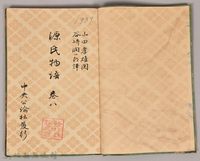 1939
山田孝雄閲
谷崎潤一郎譯
源氏物語 巻八
中央公論社發行